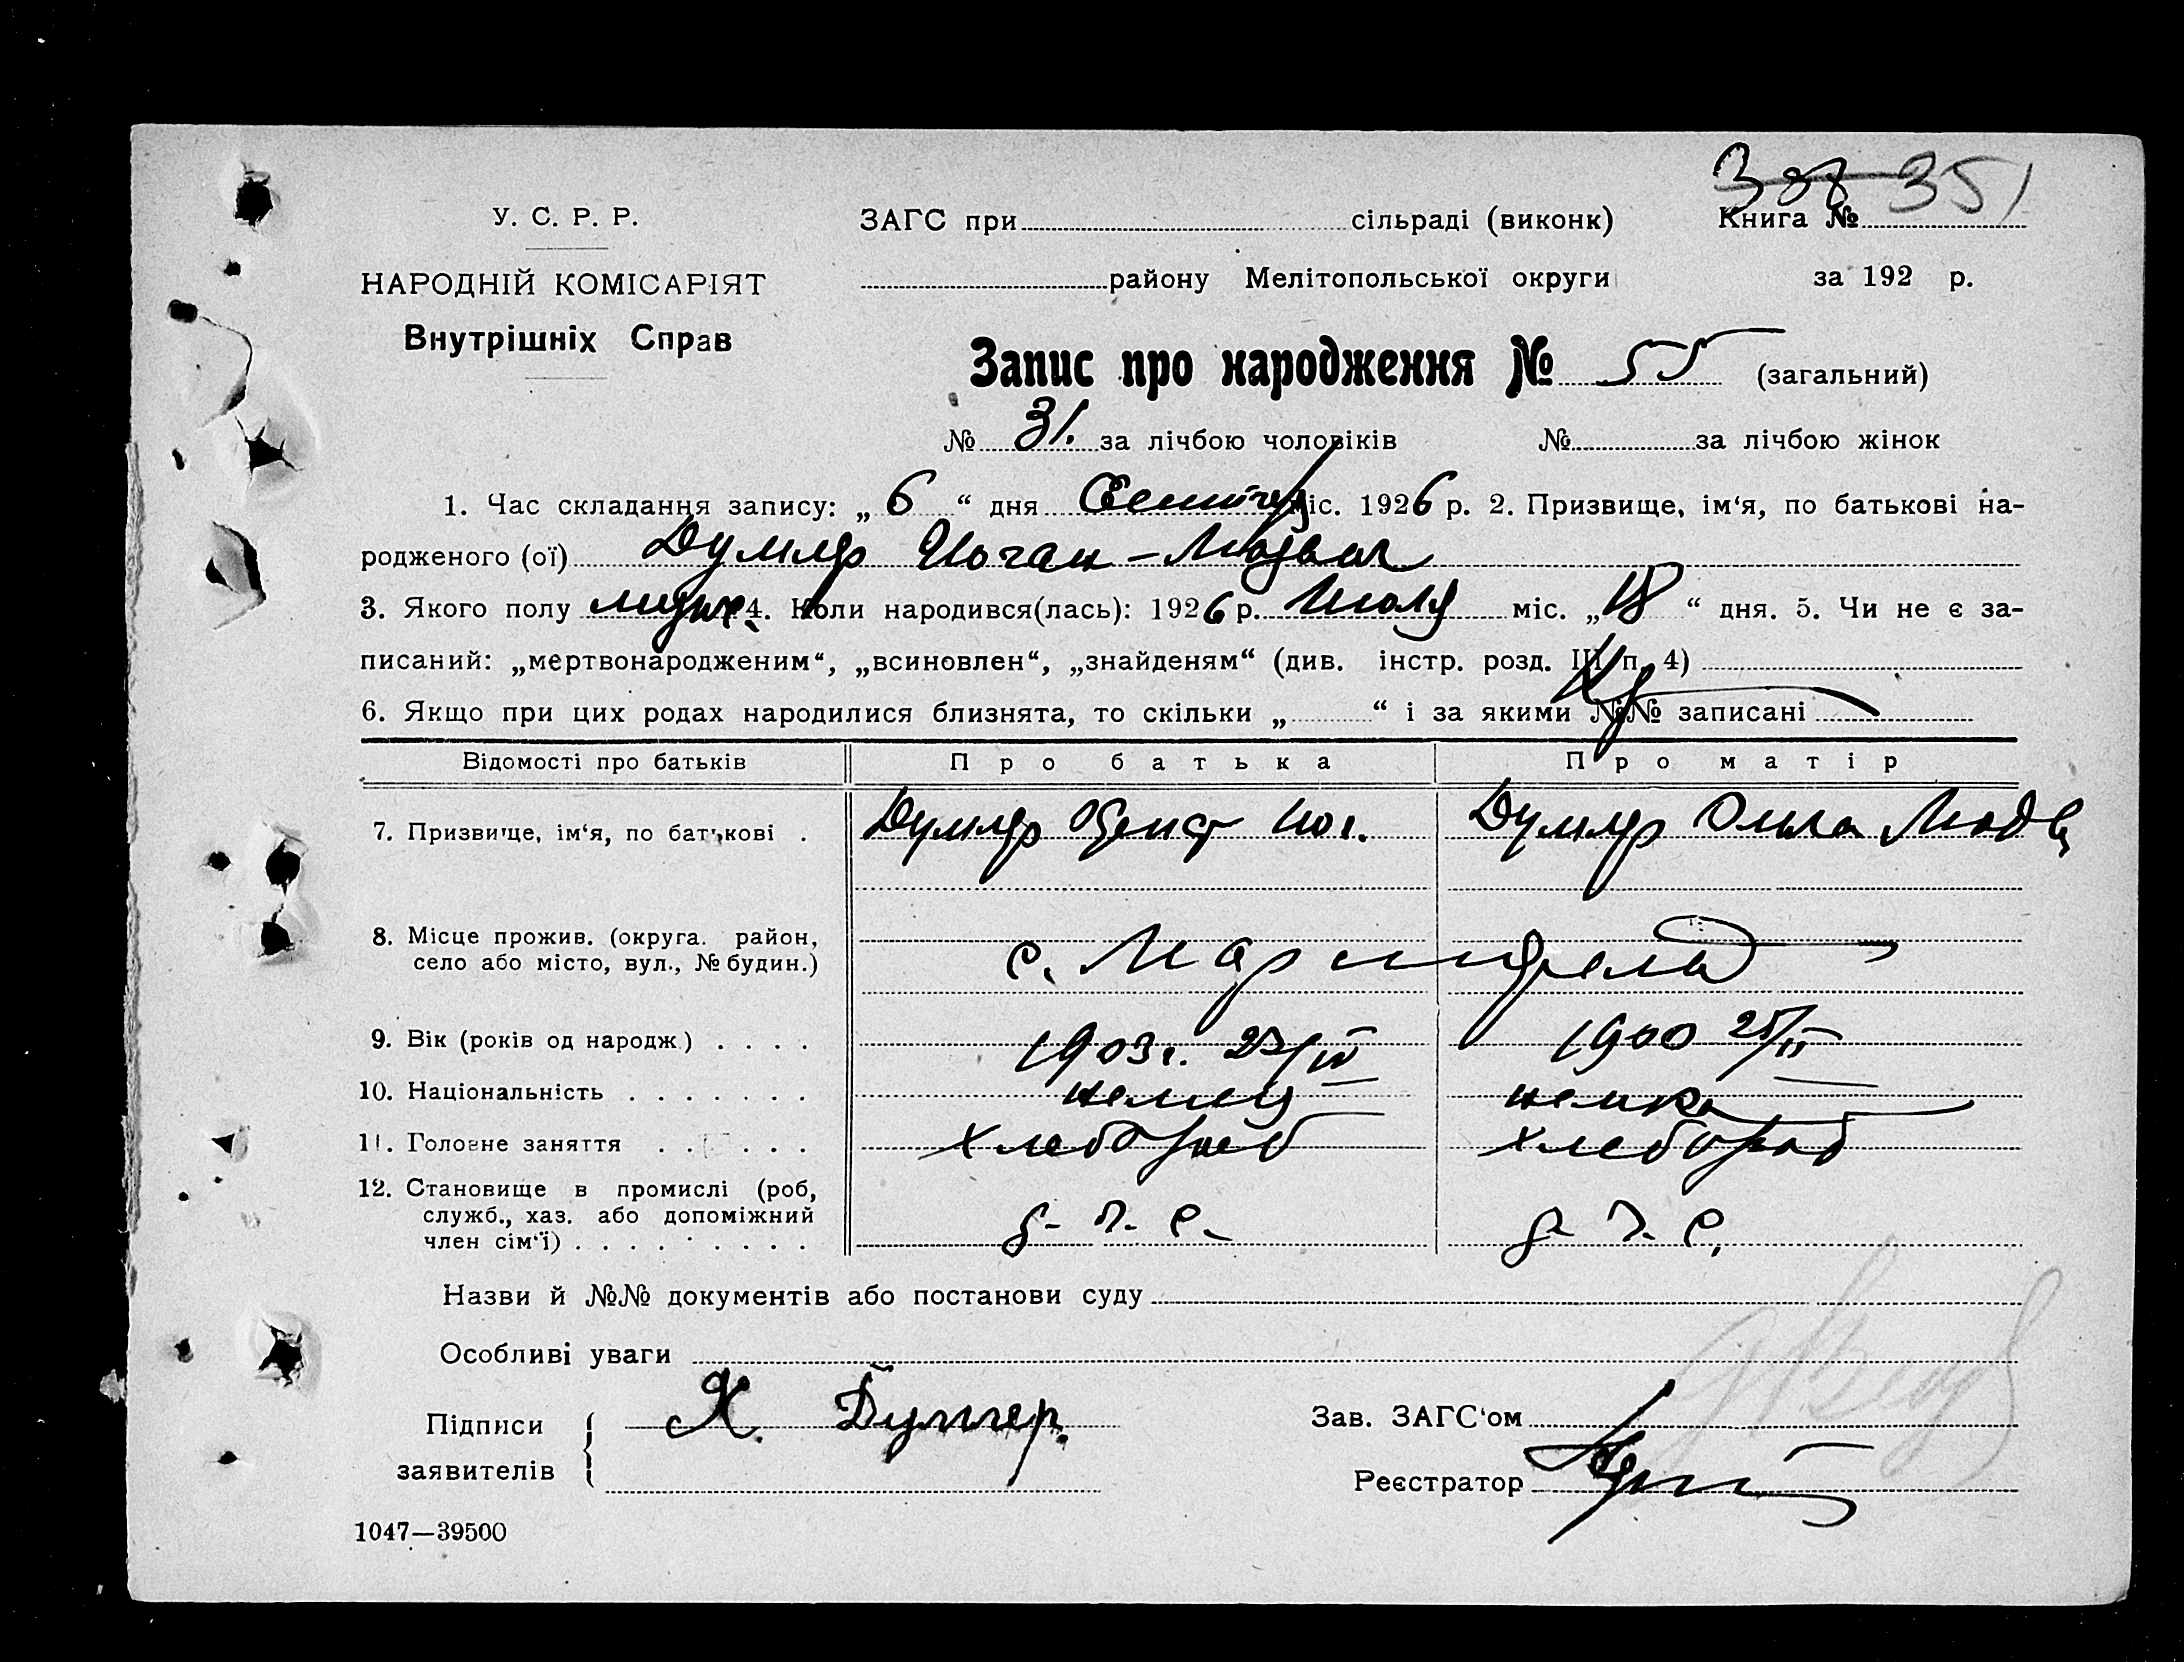 388 351
У. С. Р. Р.
ЗАГС при сільраді (виконк) Книга №
НАРОДНІЙ КОМІСАРІЯТ
району Мелітопольської округи за 192 р.
Внутрішніх Справ
Запис про народження № 55 (загальний)
№ 31. за лічбою чоловіків № за лічбою жінок
1. Час складання запису: „ 6 “ дня міс. 1926 р. 2. Призвище, ім‘я, по батькові на-
родженого (ої) Думлер Иоган -
3. Якого полу мужс. 4. Коли народився(лась): 1926 р. Июля міс. „ 18 “ дня. 5. Чи не є за-
писаний: „мертвонародженим“, „всиновлен“, „знайденям“ (див. інстр. розд. III п. 4)
6. Якщо при цих родах народилися близнята, то скільки „ “ і за якими №№ записані
Відомості про батьків Про батька Про матір
7. Призвище, ім‘я, по батькові . Думлер Иог. Думлер Ольга Людв
8. Місце прожив. (округа. район,
село або місто, вул., № будин.) с.
9. Вік (років од народж.) . . . . 1903 г. 1900 25/II
10. Національність . . . . . . . немец немка
11. Головне заняття . . . . . . хлебороб хлебороб
12. Становище в промислі (роб,
служб., хаз. або допоміжний
член сім‘ї) . . . . . . . . .
Назви й №№ документів або постанови суду
Особливі уваги
Підписи Х. Думлер.
Зав. ЗАГС‘ом
заявителів
Реєстратор
1047—39500